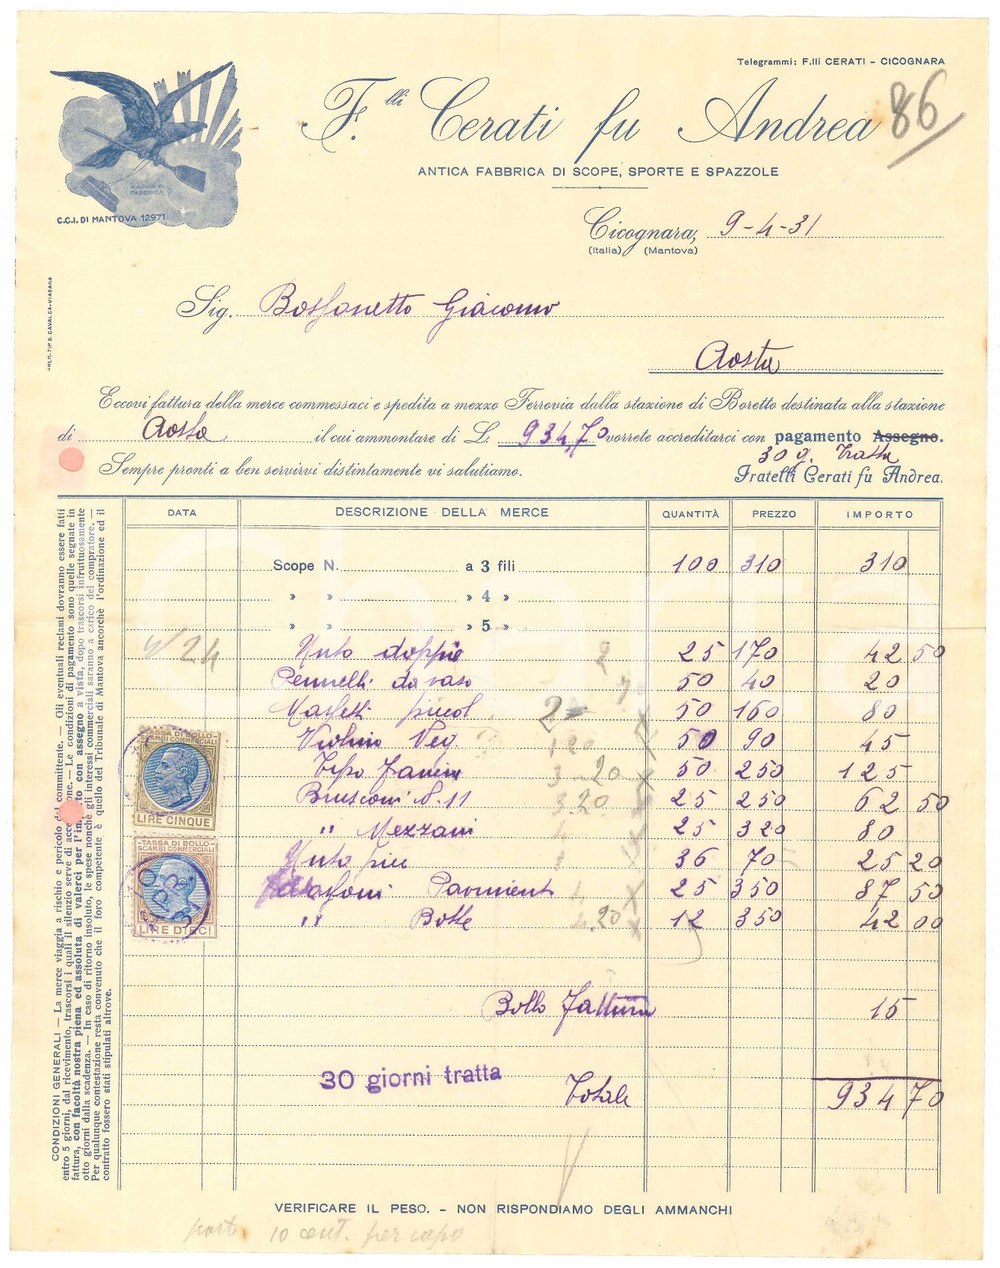 Telegrammi: F.lli CERATI - CICOGNARA
F.lli Cerati fu Andrea
86
ANTICA FABBRICA DI SCOPE, SPORTE E SPAZZOLE
MARCA DI FABBRICA
C.C.I. DI MANTOVA 12971
Cicognara, 9-4-31
(Italia) (Mantova)
Sig. Bossonetto Giacomo
Aosta
Eccovi fattura della merce commessaci e spedita a mezzo Ferrovia dalla stazione di Boretto destinata alla stazione
di Aosta il cui ammontare di L. 934,70 vorrete accreditarci con pagamento Assegno.
30 g. tratta
Sempre pronti a ben servirvi distintamente vi salutiamo.
Fratelli Cerati fu Andrea.
DATA DESCRIZIONE DELLA MERCE QUANTITÀ PREZZO IMPORTO
Scope N. a 3 fili 100 310 310
» » » 4 »
» » » 5 »
N/24 doppie 2 25 170 42 50
Pennelli da vaso 70 50 40 20
piccol 2 50 160 80
Veg. 120 50 90 45
3-20 50 250 125
Brusconi N. 11 3.20 25 250 62 50
" Mezzani 4 25 320 80
36 70 25 20
Paviment 4 25 350 87 50
" Botte 4.20 12 350 42 00
TASSA DI BOLLO
SCAMBI COMMERCIALI
LIRE CINQUE
TASSA DI BOLLO
SCAMBI COMMERCIALI
LIRE DIECI
Bollo Fattura 15
30 giorni tratta
Totale 934 70
CONDIZIONI GENERALI — La merce viaggia a rischio e pericolo del committente. — Gli eventuali reclami dovranno essere fatti
entro 5 giorni, dal ricevimento, trascorsi i quali il silenzio serve di accettazione. — Le condizioni di pagamento sono quelle segnate in
fattura, con facoltà nostra piena ed assoluta di valerci per l'importo con assegno a vista, dopo trascorsi infruttuosamente
otto giorni dalla scadenza. — In caso di ritorno insoluto, le spese nonchè gli interessi commerciali saranno a carico del compratore. —
Per qualunque contestazione resta convenuto che il foro competente è quello del Tribunale di Mantova ancorchè l'ordinazione ed il
contratto fossero stati stipulati altrove.
VERIFICARE IL PESO. - NON RISPONDIAMO DEGLI AMMANCHI
porto 10 cent. per capo